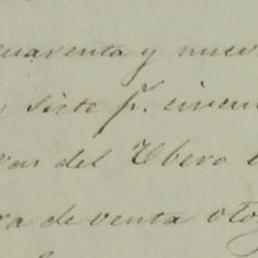 uarenta y nuev
siete p.r circu
del Ebero
ra de venta oto